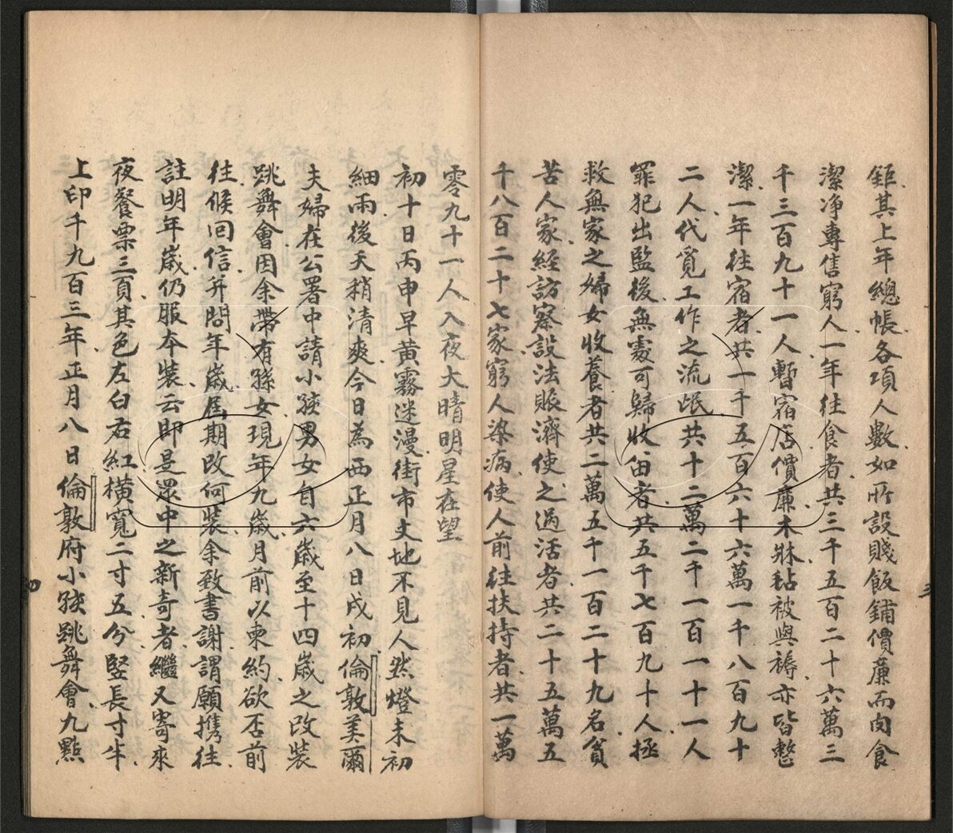 鉅其上年總帳各項人數如所設賤飯鋪價廉而肉食
潔净專售窮人一年徃食者共三千五百二十六萬三
千三百九十一人暫宿店價廉木牀毡被與褥亦皆整
潔一年徃宿者共一千五百六十六萬一千八百九十
二人代覓工作之流氓共十二萬二千一百一十一人
罪犯出監後無處可歸收留者共五千七百九十人拯
救無家之婦女收養者共二萬五千一百二十九名貧
苦人家經訪察設法賑濟使之過活者共二十五萬五
千八百二十七家窮人染病使人前徃扶持者共一萬
零九十一人入夜大晴明星在望
初十日丙申早黃霧迷漫街市丈地不見人然燈未初
細雨後天稍清爽今日為西正月八日戌初倫敦美爾
夫婦在公署中請小孩男女自六歲至十四歲之改裝
跳舞會因余帶有孫女現年九歲月前以柬約欲否前
徃候回信并問年歲屆期改何裝余致書謝謂願携徃
註明年歲仍服本裝云即是眾中之新奇者繼又寄來
夜餐票三頁其色左白右紅橫寬二寸五分竪長寸半
上印千九百三年正月八日倫敦府小孩跳舞會九點
三
四